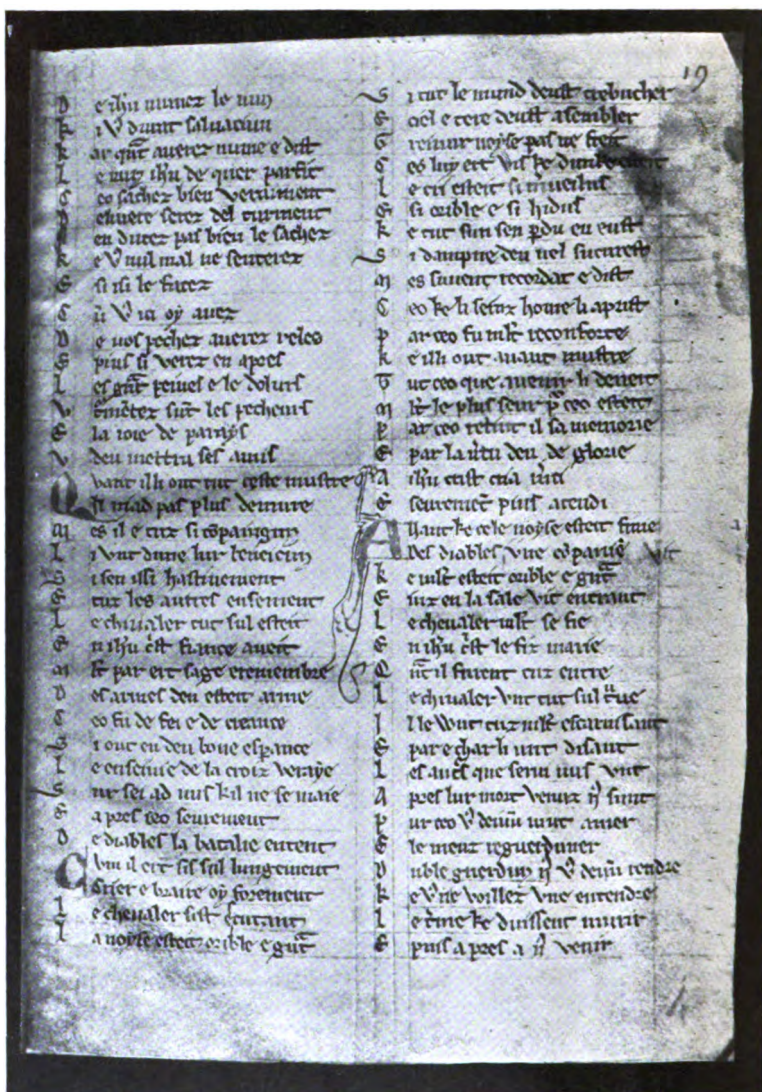 19
D e ihu numez le nun
K i v durat saluaciun
K ar qnt auerez nume e dist
L e nun ihu de quer parfit
C eo sachez bien verraiment
D eliuere serez del turment
N en dutez pas bien le sachez
K e v nul mal ne senterez
E si isi le facez
C v ici oy auez
D e vos pechez auerez reles
E puis si verez en apres
L es gnt peines e le dolurs
v sunt les pecheurs
E la ioie de parays
V deu mettra ses amis
Q vant ilh out tut ceste mustre
Hi mad pas plus demure
M es il e tuz si cumpaignun
L i vnt dune lur beneicun
S i sen issi hastiuement
E tuz les autres ensement
L e chiualer tut sul esteit
E n ihu crist fiance aueit
M lt par ert sage e remembre
D es armes deu esteit arme
C eo fu de fei e de creance
S i out en deu bone esperance
L e enseine de la croiz veraye
S ur sei ad mis kil ne se maie
E apres ceo seurement
D e diables la bataile entent
C vm il ert sis sul lungement
Crier e braire oy forement
L e chevaler sist escutant
L a noyse esteit orible e gnt
S i tut le mund deust trebucher
E ciel e tere deust asembler
G reinur noyse pas ne freit
C es luy ert vis ke dunke
L e cri esteit si merueilus
E si orible e si hidus
K e tut sun sen perdu en eust
S i dampne deu nel sucurest
M es suuent recordat e dist
C eo ke li seinz home li aprist
P ar ceo fu mlt reconforte
K e ilh out auant mustre
T ut ceo que auenir li deueit
M lt le plus seur pur ceo esteit
P ar ceo retint il sa memorie
E par la vertu deu de glorie
A ihu crist cria merci
E seurement puis atendi
A Uant ke cele noyse esteit finie
Des diables vne cumpainie vit
K e mlt esteit orible e gnt
E iuz en la sale vit entrant
L e chevaler mlt se fie
E n ihu crist le fiz marie
Q nt il furent tuz entre
L e chiualer vnt tut sul truue
I l le vunt tuz mlt escriant
E par echar li unt disant
L es autres que serui nus vnt
A pres lur mort venuz i sunt
P ur ceo v deuum mut amer
E le meuz reguerduner
D uble guerdun v deuum rendre
K e v ne voillez vne entendre
L e terme ke duissent murir
E puis apres a venir